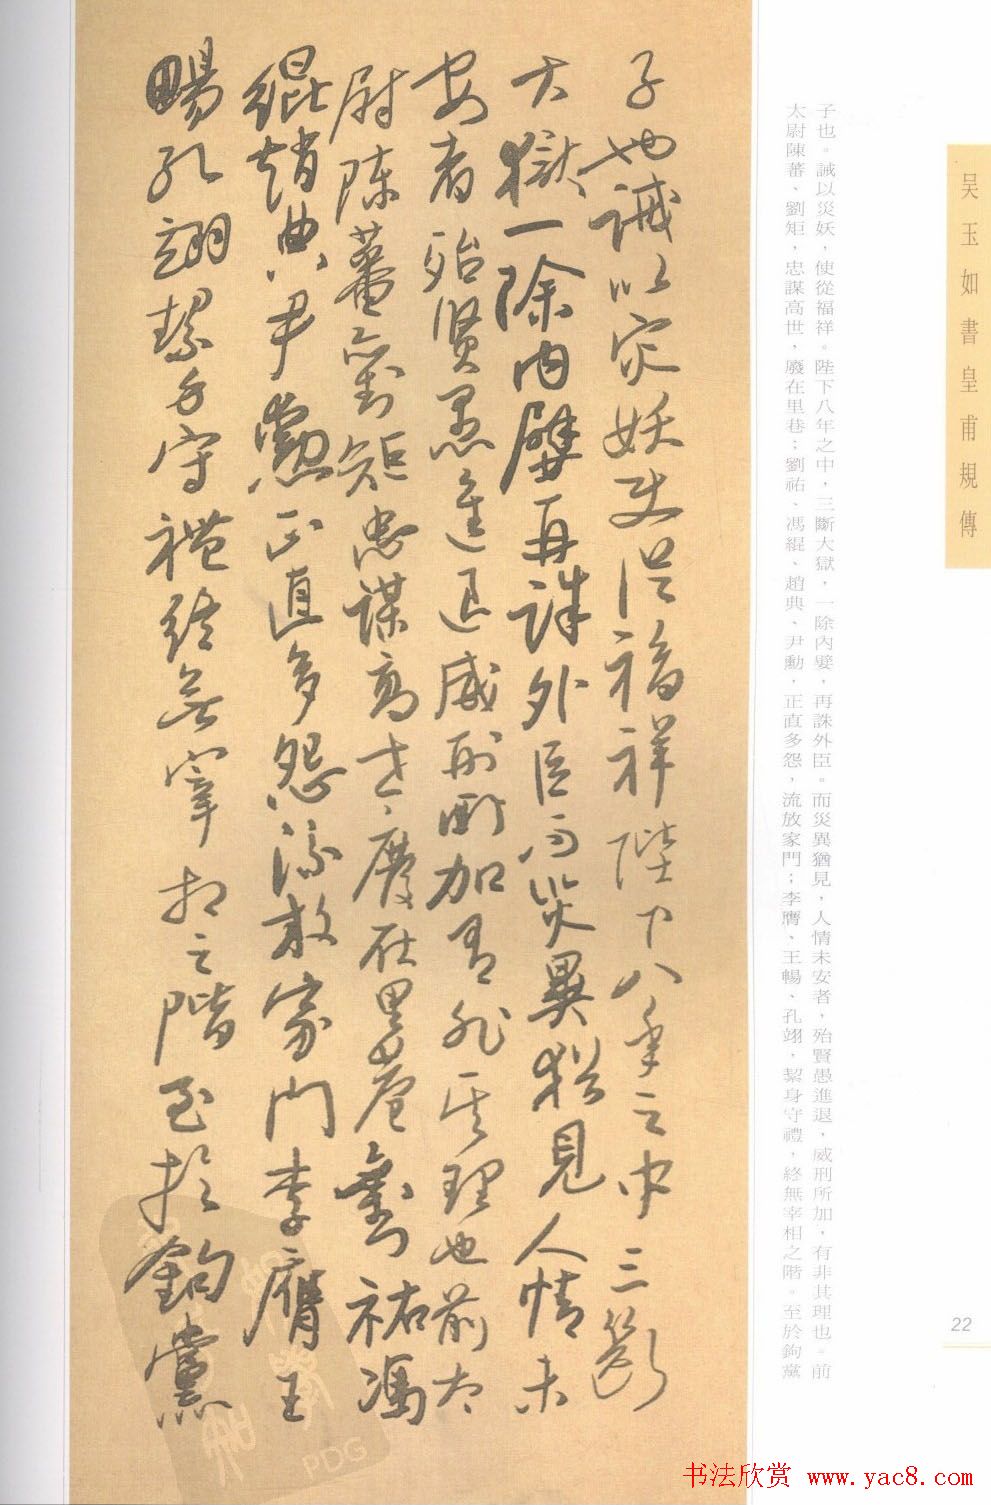 吴玉如書皇甫規傳
子也。誡以災妖，使從福祥。陛下八年之中，三斷大獄，一除內嬖，再誅外臣。而災異猶見，人情未安者，殆賢愚進退，威刑所加，有非其理也。前
太尉陳蕃、劉矩，忠謀高世，廢在里巷；劉祐、馮緄、趙典、尹勳，正直多怨，流放家門；李膺、王暢、孔翊，絜身守禮，終無宰相之階。至於鉤黨
子也誡以災妖使從福祥陛下八年之中三斷
大獄一除内嬖再誅外臣而災異猶見人情未
安者殆賢愚進退威刑所加有非其理也前太
尉陳蕃劉矩忠謀高世廢在里巷劉祐馮
緄趙典尹勳正直多怨流放家門李膺王
暢孔翊絜身守禮終無宰相之階至於鉤黨
22
PDG
书法欣赏 www.yac8.com